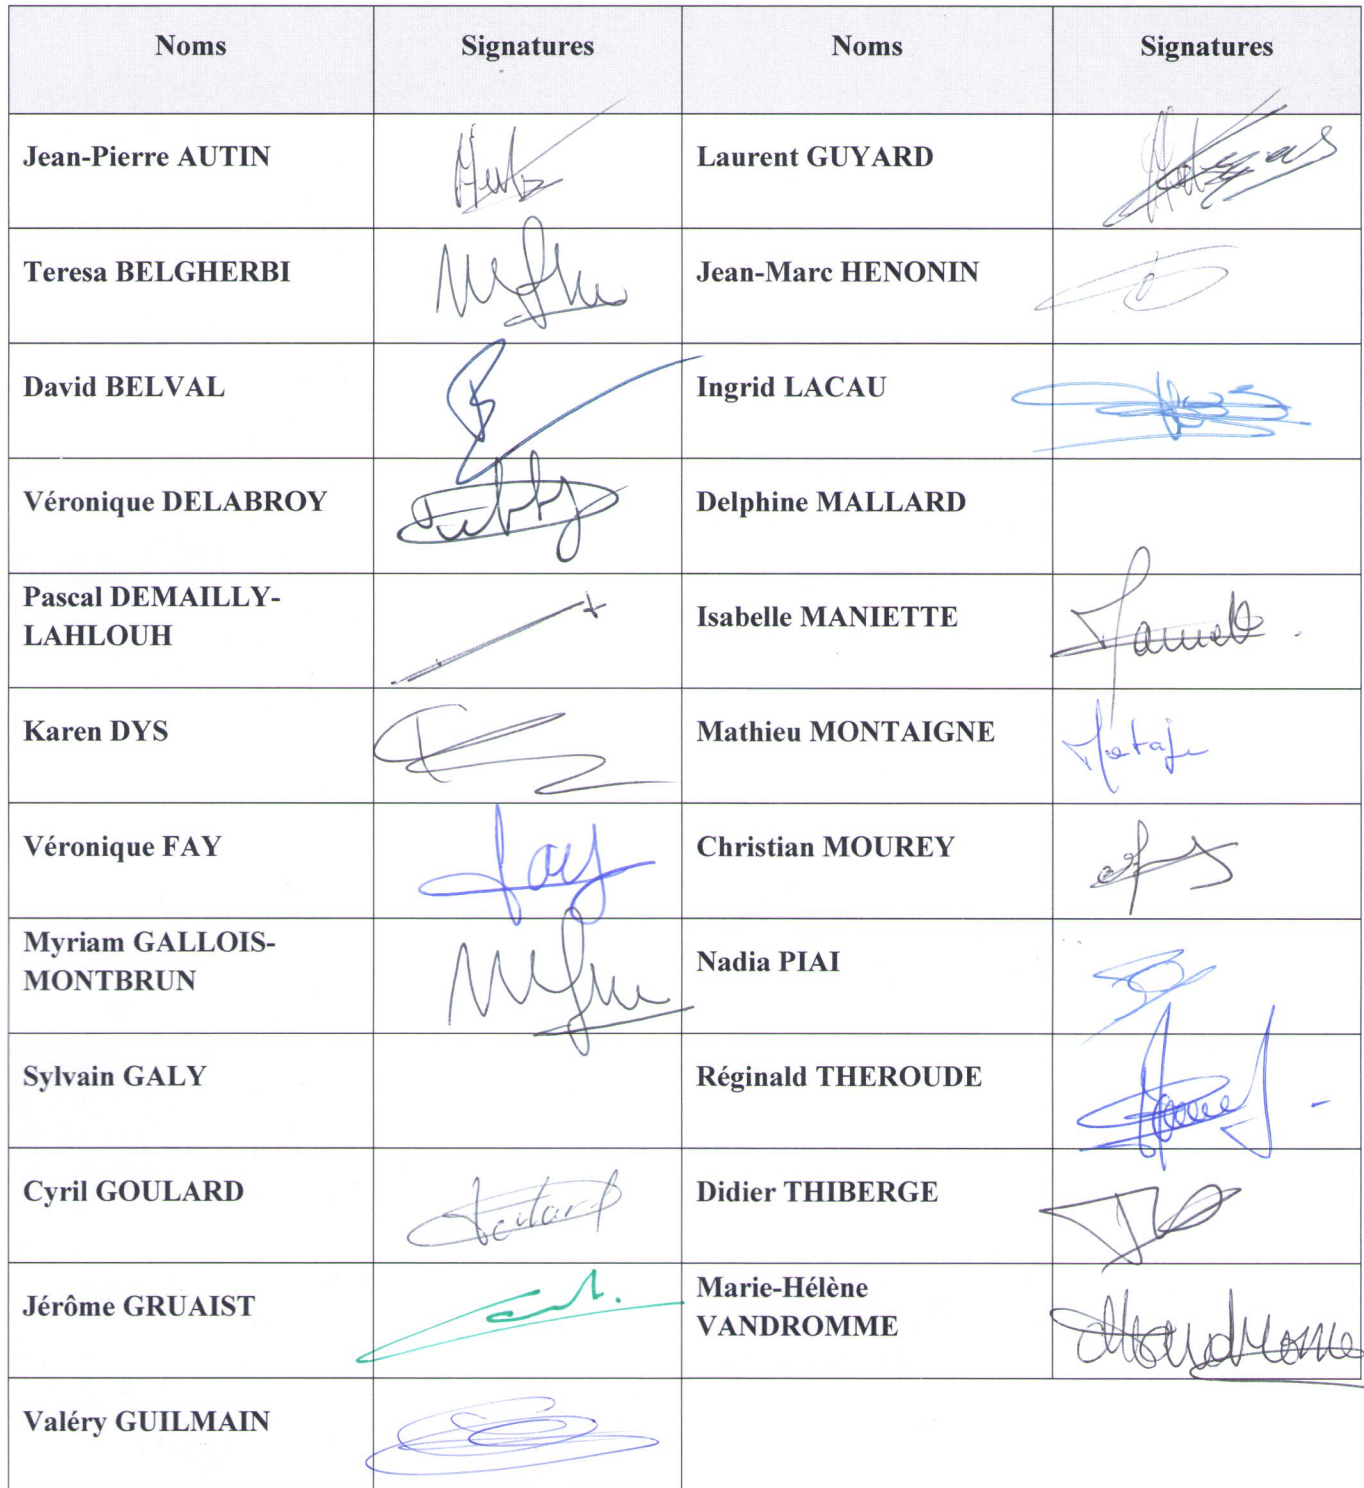 Noms Signatures Noms Signatures
Jean-Pierre AUTIN Laurent GUYARD
Teresa BELGHERBI Jean-Marc HENONIN
David BELVAL Ingrid LACAU
Véronique DELABROY Delphine MALLARD
Pascal DEMAILLY-
LAHLOUH Isabelle MANIETTE
Karen DYS Mathieu MONTAIGNE
Véronique FAY Fay Christian MOUREY
Myriam GALLOIS-
MONTBRUN Nadia PIAI
Sylvain GALY Réginald THEROUDE
Cyril GOULARD Didier THIBERGE
Jérôme GRUAIST Marie-Hélène
VANDROMME
Valéry GUILMAIN